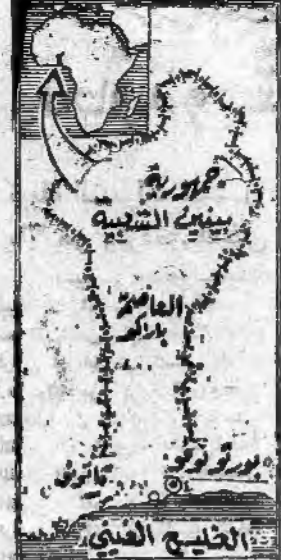 جمهورية
بينين الشعبية
العاصمة
باراكو
بورتو نوفو
كوتونو
الخليج الغيني